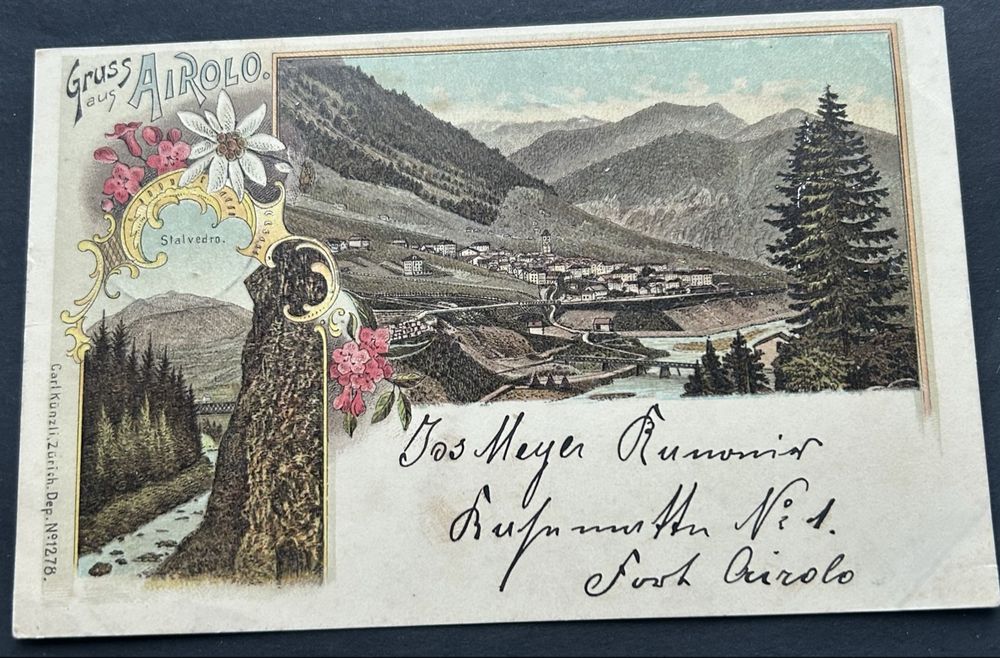 Gruss
aus
AIROLO.
Stalvedro.
Carl Künzli, Zürich. Dep. No 1278.
Jos Meyer Kanonier
No 1.
Fort Airolo